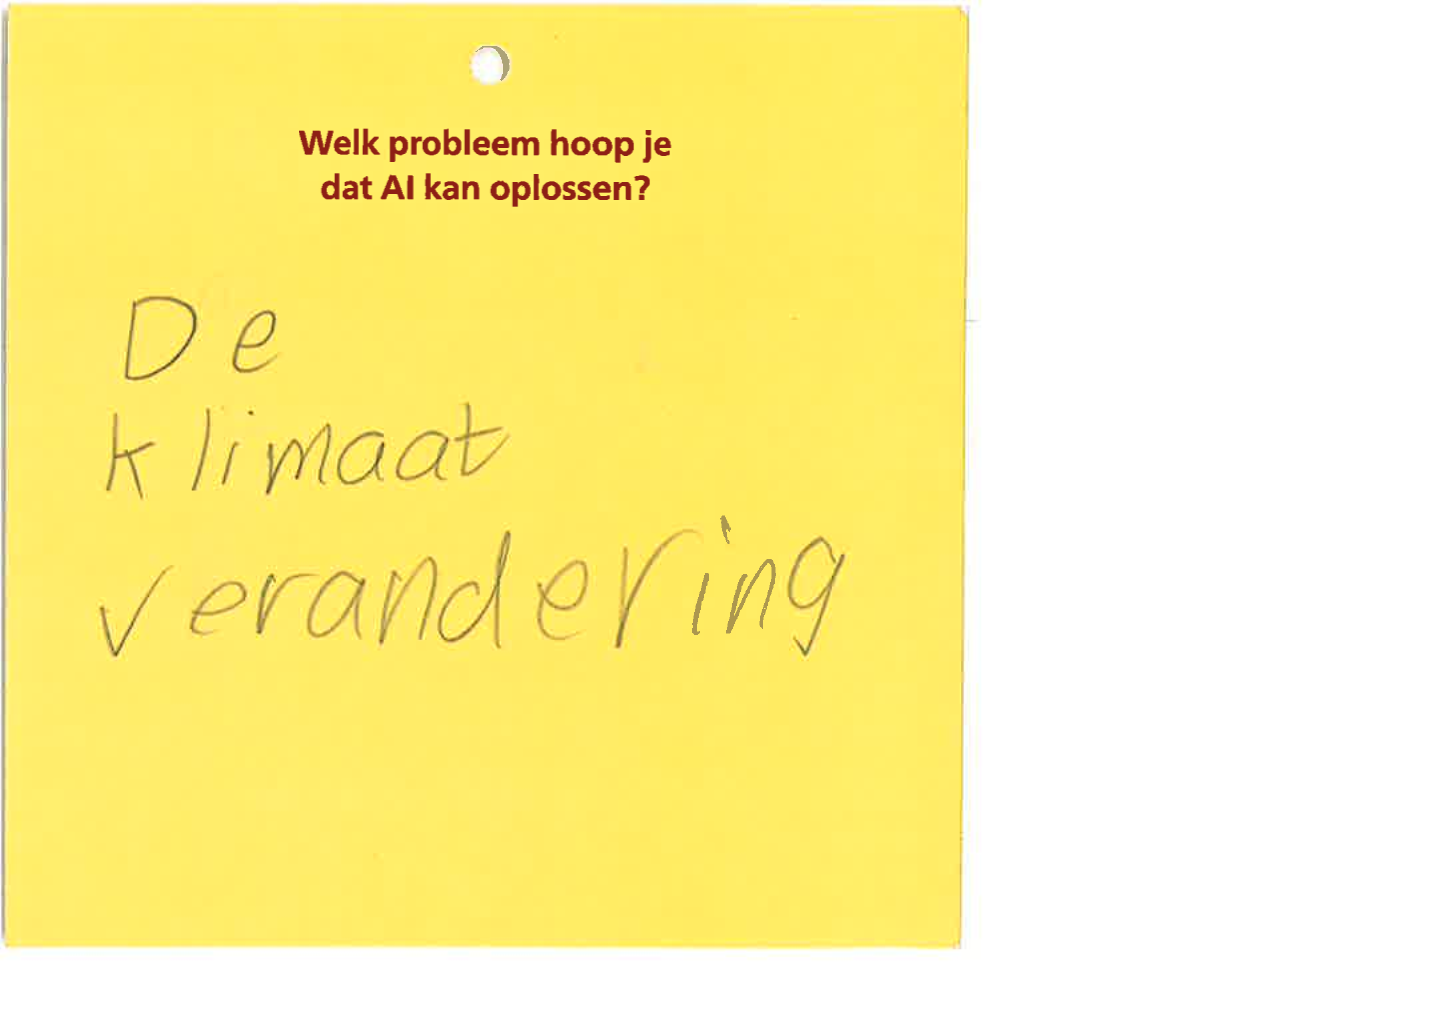 Welk probleem hoop je
dat AI kan oplossen?
De
klimaat
verandering